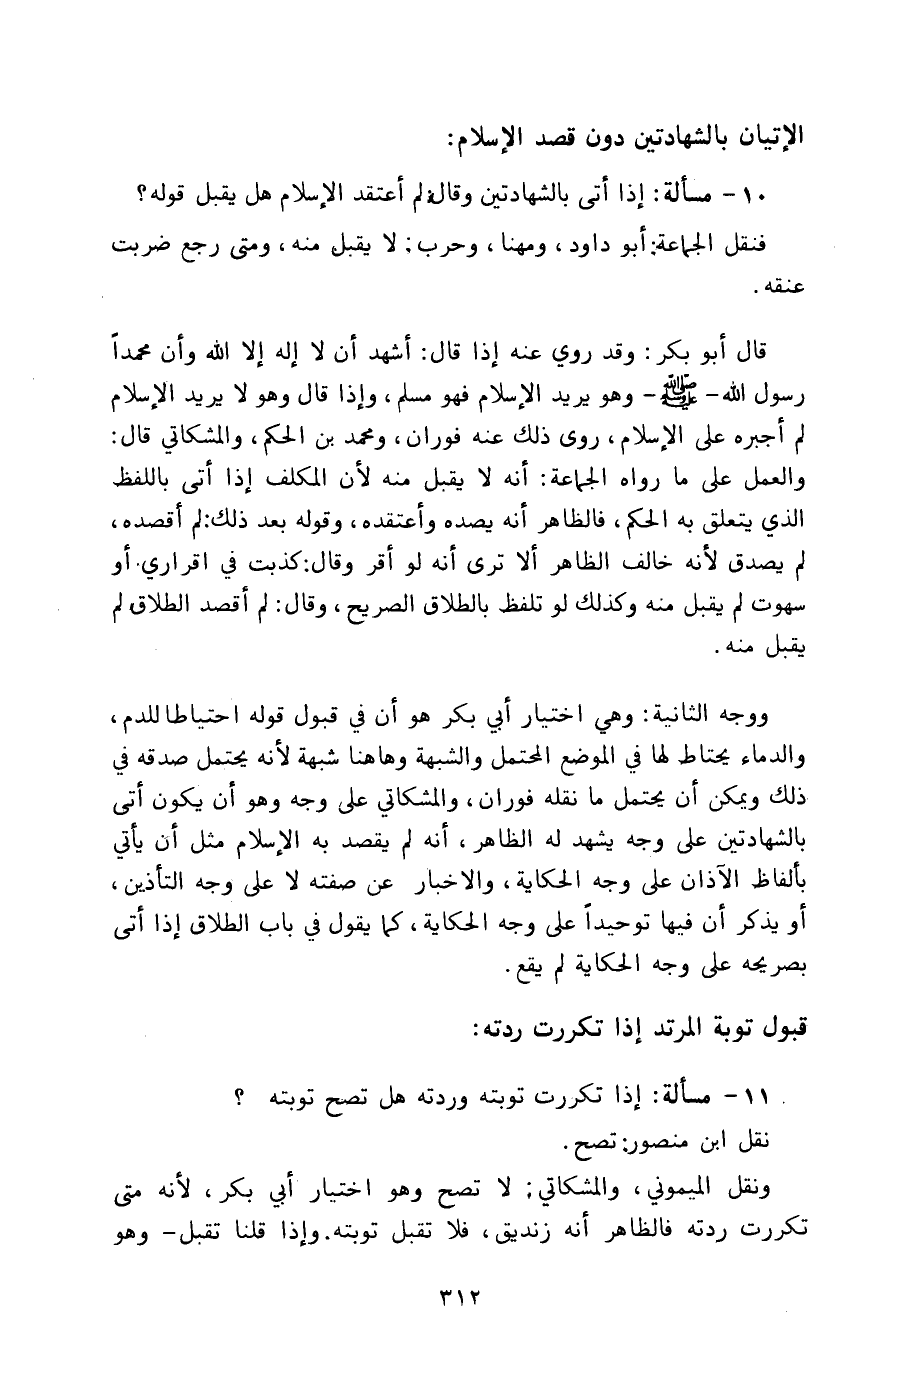 الإتيان بالشهادتين دون قصد الإسلام:
١٠ - مسألة: إذا أتى بالشهادتين وقال: لم أعتقد الإسلام هل يقبل قوله؟
فنقل الجماعة: أبو داود ، ومهنا ، وحرب : لا يقبل منه ، ومتى رجع ضربت
عنقه .
قال أبو بكر : وقد روي عنه إذا قال: أشهد أن لا إله إلا الله وأن محمداً
رسول الله - ﷺ - وهو يريد الإسلام فهو مسلم ، وإذا قال وهو لا يريد الإسلام
لم أجبره على الإسلام ، روى ذلك عنه فوران ، ومحمد بن الحكم ، والمشكاتي قال:
والعمل على ما رواه الجماعة: أنه لا يقبل منه لأن المكلف إذا أتى باللفظ
الذي يتعلق به الحكم ، فالظاهر أنه يصده وأعتقده ، وقوله بعد ذلك: لم أقصده ،
لم يصدق لأنه خالف الظاهر ألا ترى أنه لو أقر وقال: كذبت في اقراري أو
سهوت لم يقبل منه وكذلك لو تلفظ بالطلاق الصريح ، وقال: لم أقصد الطلاق لم
يقبل منه .
ووجه الثانية: وهي اختيار أبي بكر هو أن في قبول قوله احتياطا للدم ،
والدماء يحتاط لها في الموضع المحتمل والشبهة وهاهنا شبهة لأنه يحتمل صدقه في
ذلك ويمكن أن يحتمل ما نقله فوران ، والمشكاتي على وجه وهو أن يكون أتى
بالشهادتين على وجه يشهد له الظاهر ، أنه لم يقصد به الإسلام مثل أن يأتي
بألفاظ الآذان على وجه الحكاية ، والاخبار عن صفته لا على وجه التأذين ،
أو يذكر أن فيها توحيداً على وجه الحكاية ، كما يقول في باب الطلاق إذا أتى
بصريحه على وجه الحكاية لم يقع .
قبول توبة المرتد إذا تكررت ردته:
١١ - مسألة: إذا تكررت توبته وردته هل تصح توبته ؟
نقل ابن منصور: تصح .
ونقل الميموني ، والمشكاتي : لا تصح وهو اختيار أبي بكر ، لأنه متى
تكررت ردته فالظاهر أنه زنديق ، فلا تقبل توبته. وإذا قلنا تقبل - وهو
٣١٢